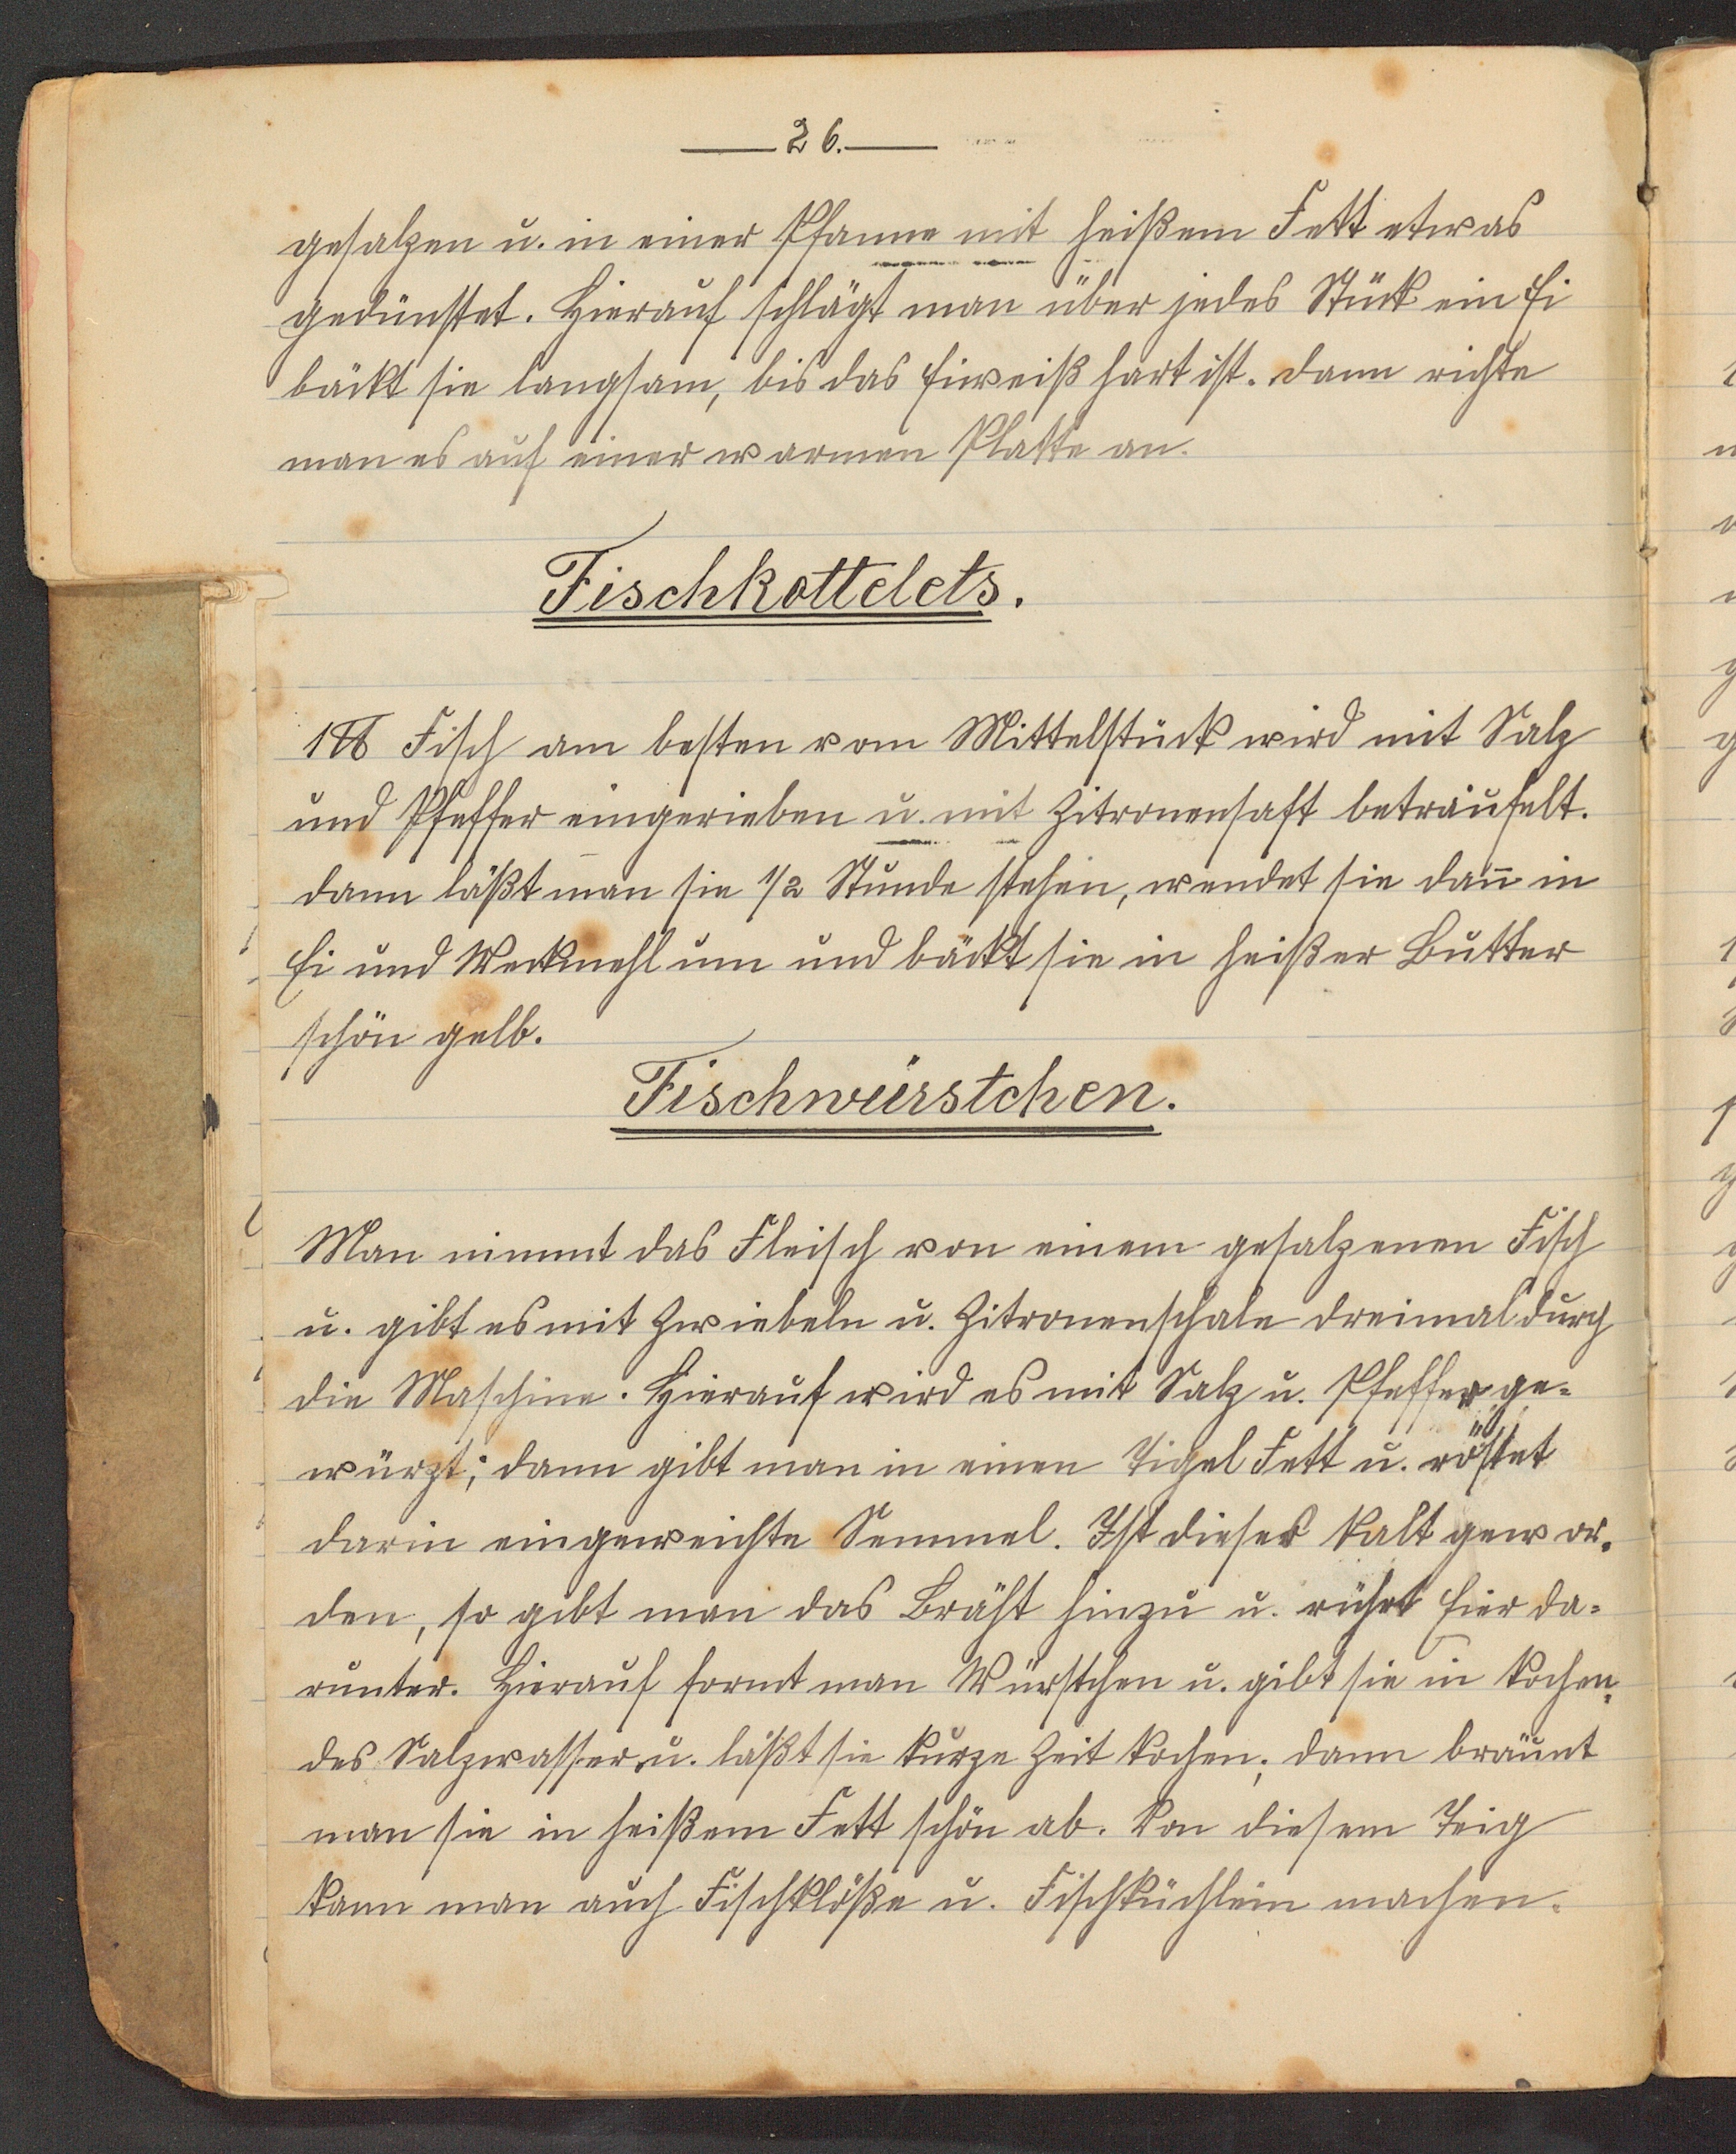 26.
gesalzen u. in einer Pfanne mit heißem Fett etwas
gedünstet. Hierauf schlägt man über jedes Stück ein Ei
bäckt sie langsam, bis das Eiweiß hart ist. Dann richte
man es auf einer warmen Platte an.
Fischkottelets.
1 ℔ Fisch am besten vom Mittelstück wird mit Salz
und Pfeffer eingerieben u. mit Zitronensaft beträufelt.
dann läßt man sie 1/2 Stunde stehen, wendet sie dan̄ in
Ei und Weckmehl um und bäckt sie in heißer Butter
schön gelb.
Fischwürstchen.
Man nimmt das Fleisch von einem gesalzenen Fisch
u. gibt es mit Zwiebeln u. Zitronenschale dreimal durch
die Maschine. Hierauf wird es mit Salz u. Pfeffer ge-
würzt; dann gibt man in einen Tigel Fett u. röstet
darin eingeweichte Semmel. Ist dieses kalt gewor-
den, so gibt man das Bräht hinzu u. rührt Eier da-
runter. Hierauf formt man Würstchen u. gibt sie in kochen-
des Salzwasser u. läßt sie kurze Zeit kochen; dann bräunt
man sie in heißem Fett schön ab. Von diesem Teig
kann man auch Fischklöße u. Fischküchlein machen.